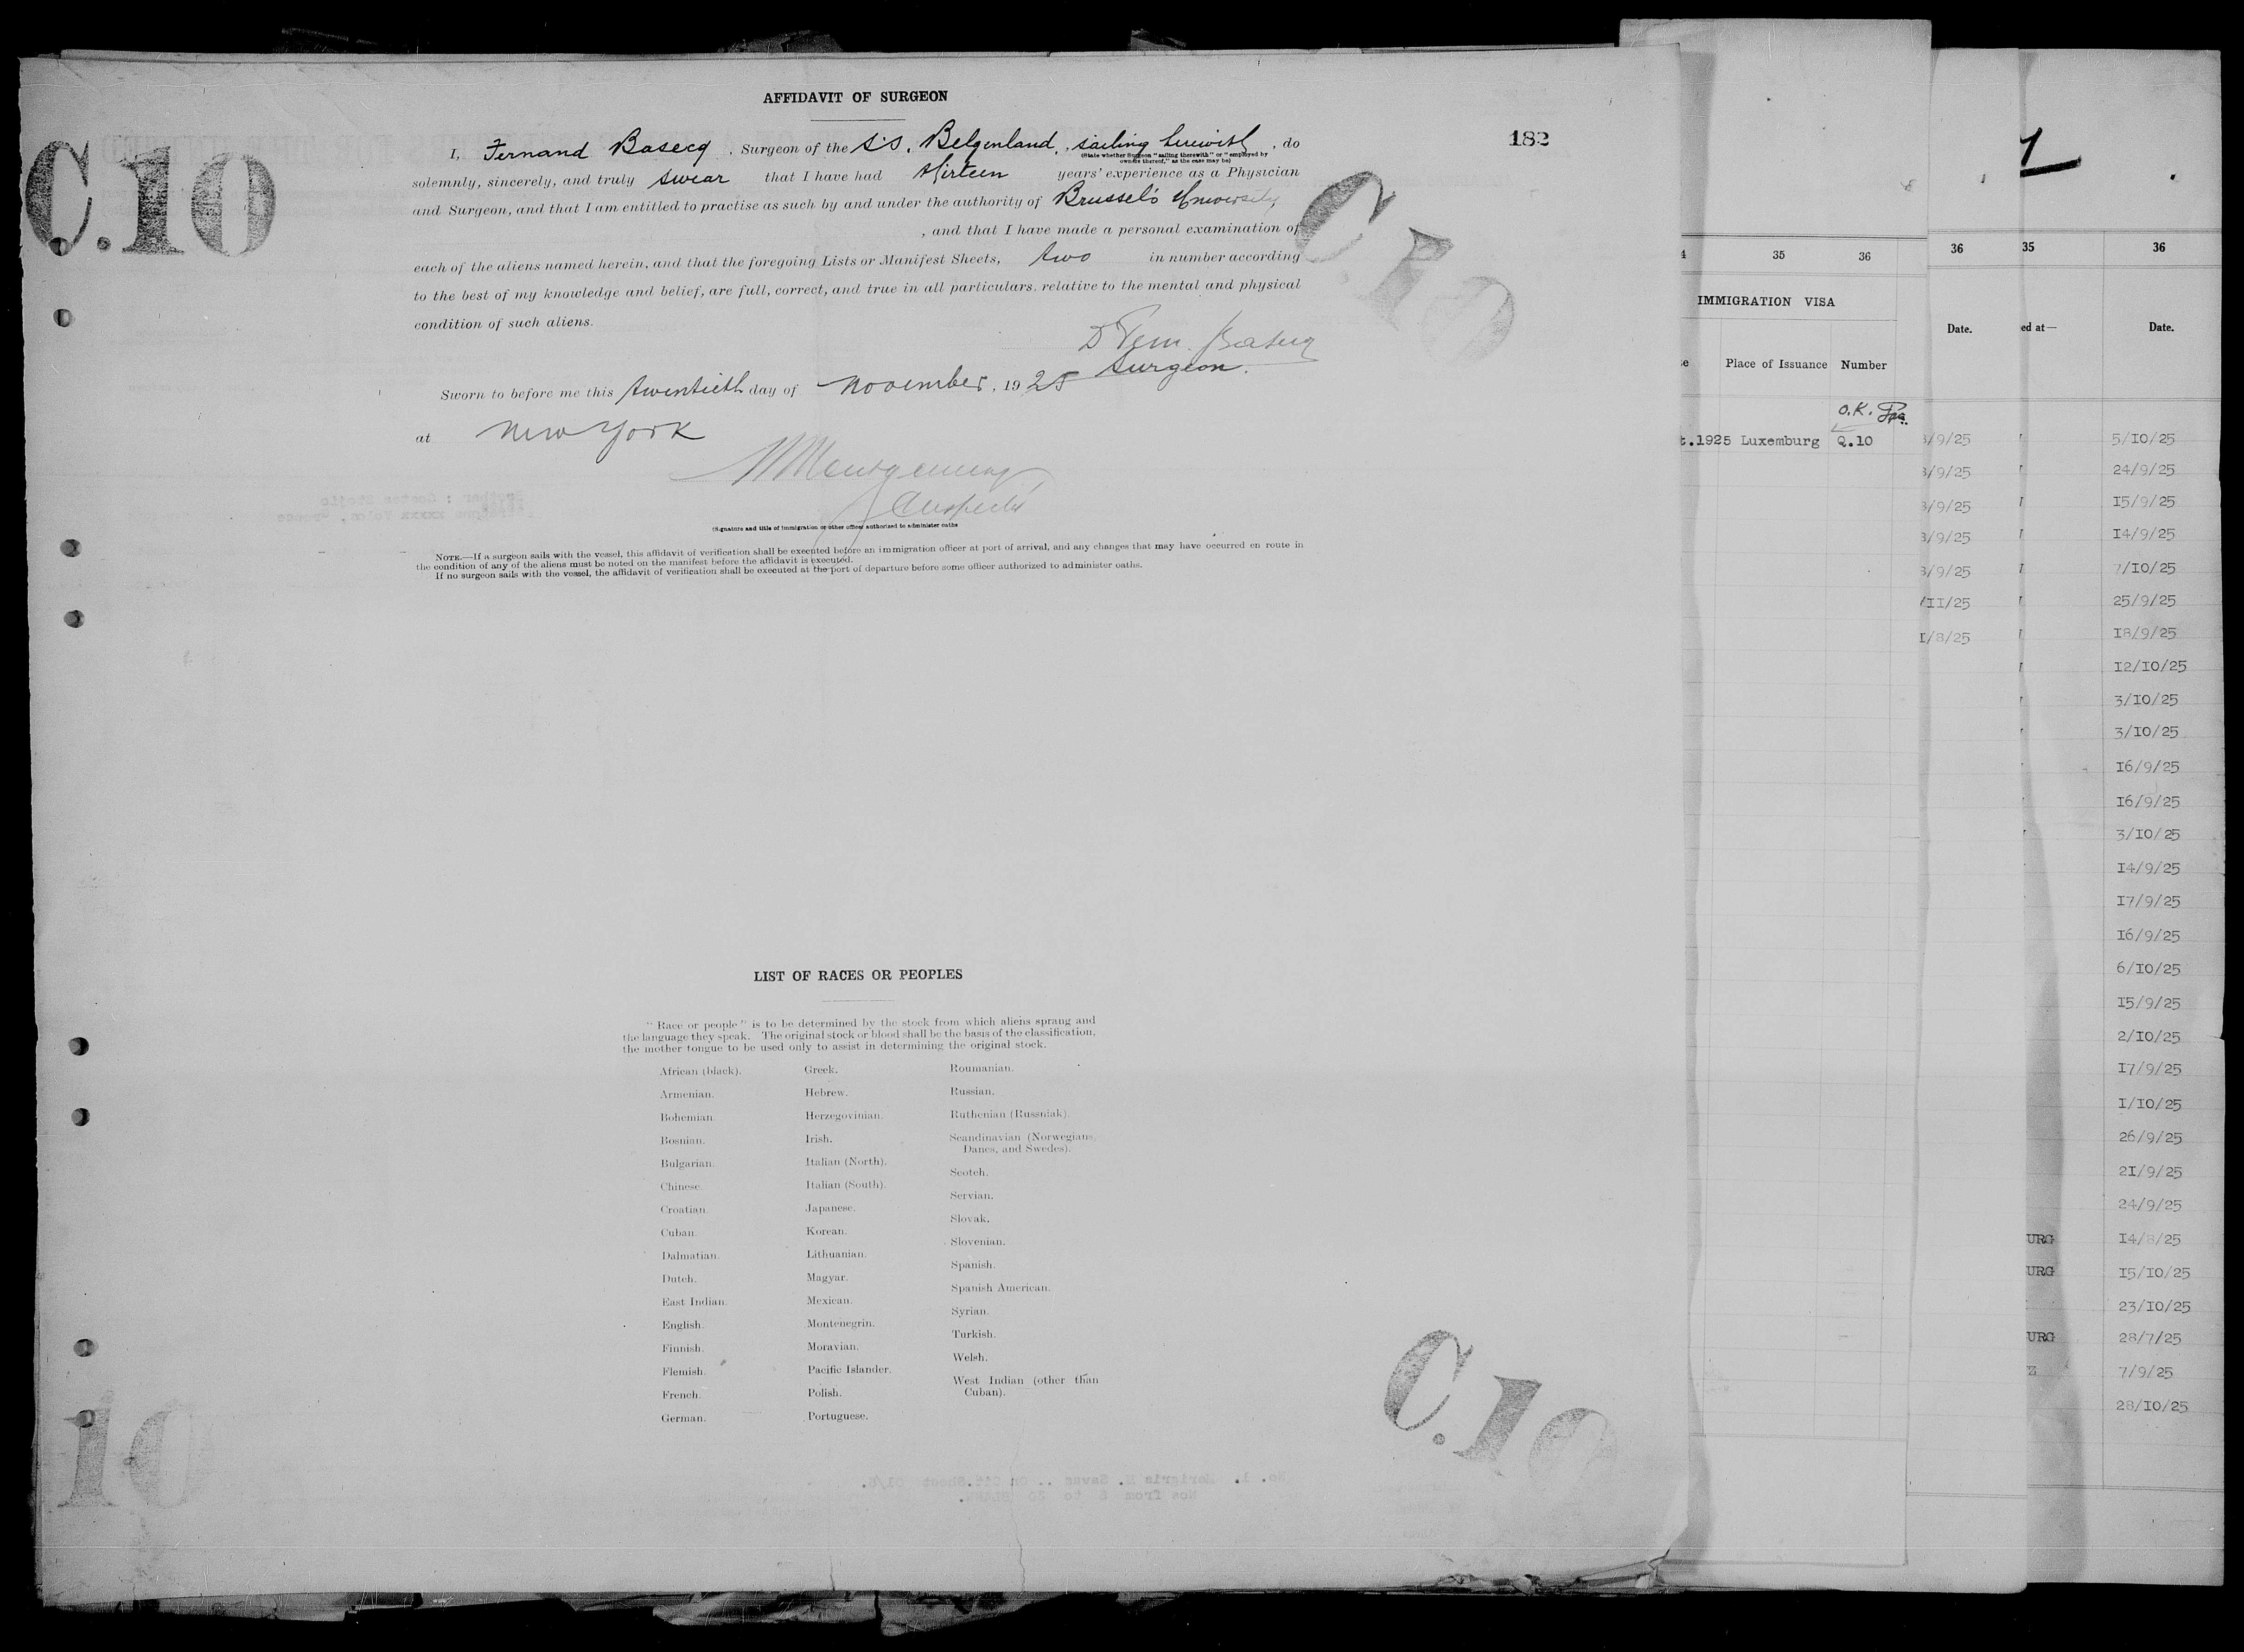 AFFIDAVIT OF SURGEON
182
C.10
I, Fernand Basecq, Surgeon of the S.S. Belgenland, sailing herewith, do
(State whether Surgeon "sailing therewith" or "employed by
owners thereof," as the case may be)
solemnly, sincerely, and truly swear that I have had thirteen years' experience as a Physician
and Surgeon, and that I am entitled to practise as such by and under the authority of Brussel's University
, and that I have made a personal examination of
each of the aliens named herein, and that the foregoing Lists or Manifest Sheets, two in number according
to the best of my knowledge and belief, are full, correct, and true in all particulars, relative to the mental and physical
condition of such aliens.
C.10
Dr Fern. Basecq
Surgeon.
Sworn to before me this twentieth day of November, 1925
at New York
Montgomery
(Signature and title of immigration or other officer authorized to administer oaths
NOTE.—If a surgeon sails with the vessel, this affidavit of verification shall be executed before an immigration officer at port of arrival, and any changes that may have occurred en route in
the condition of any of the aliens must be noted on the manifest before the affidavit is executed.
If no surgeon sails with the vessel, the affidavit of verification shall be executed at the port of departure before some officer authorized to administer oaths.
LIST OF RACES OR PEOPLES
"Race or people" is to be determined by the stock from which aliens sprang and
the language they speak. The original stock or blood shall be the basis of the classification,
the mother tongue to be used only to assist in determining the original stock.
African (black).
Armenian.
Bohemian.
Bosnian.
Bulgarian.
Chinese.
Croatian.
Cuban.
Dalmatian.
Dutch.
East Indian.
English.
Finnish.
Flemish.
French.
German.
Greek.
Hebrew.
Herzegovinian.
Irish.
Italian (North).
Italian (South).
Japanese.
Korean.
Lithuanian.
Magyar.
Mexican.
Montenegrin.
Moravian.
Pacific Islander.
Polish.
Portuguese.
Roumanian.
Russian.
Ruthenian (Russniak).
Scandinavian (Norwegians,
Danes, and Swedes).
Scotch.
Servian.
Slovak.
Slovenian.
Spanish.
Spanish American.
Syrian.
Turkish.
Welsh.
West Indian (other than
Cuban).
10
C.10
4 35 36
IMMIGRATION VISA
Place of Issuance Number
O.K.
t.1925 Luxemburg Q.10
36
Date.
3/9/25
3/9/25
3/9/25
3/9/25
3/9/25
/II/25
I/8/25
35 36
ed at— Date.
5/IO/25
24/9/25
I5/9/25
I4/9/25
7/IO/25
25/9/25
I8/9/25
I2/IO/25
3/IO/25
3/IO/25
I6/9/25
I6/9/25
3/IO/25
I4/9/25
I7/9/25
I6/9/25
6/IO/25
I5/9/25
2/IO/25
I7/9/25
I/IO/25
26/9/25
2I/9/25
24/9/25
URG I4/8/25
URG I5/IO/25
23/IO/25
URG 28/7/25
Z 7/9/25
28/IO/25